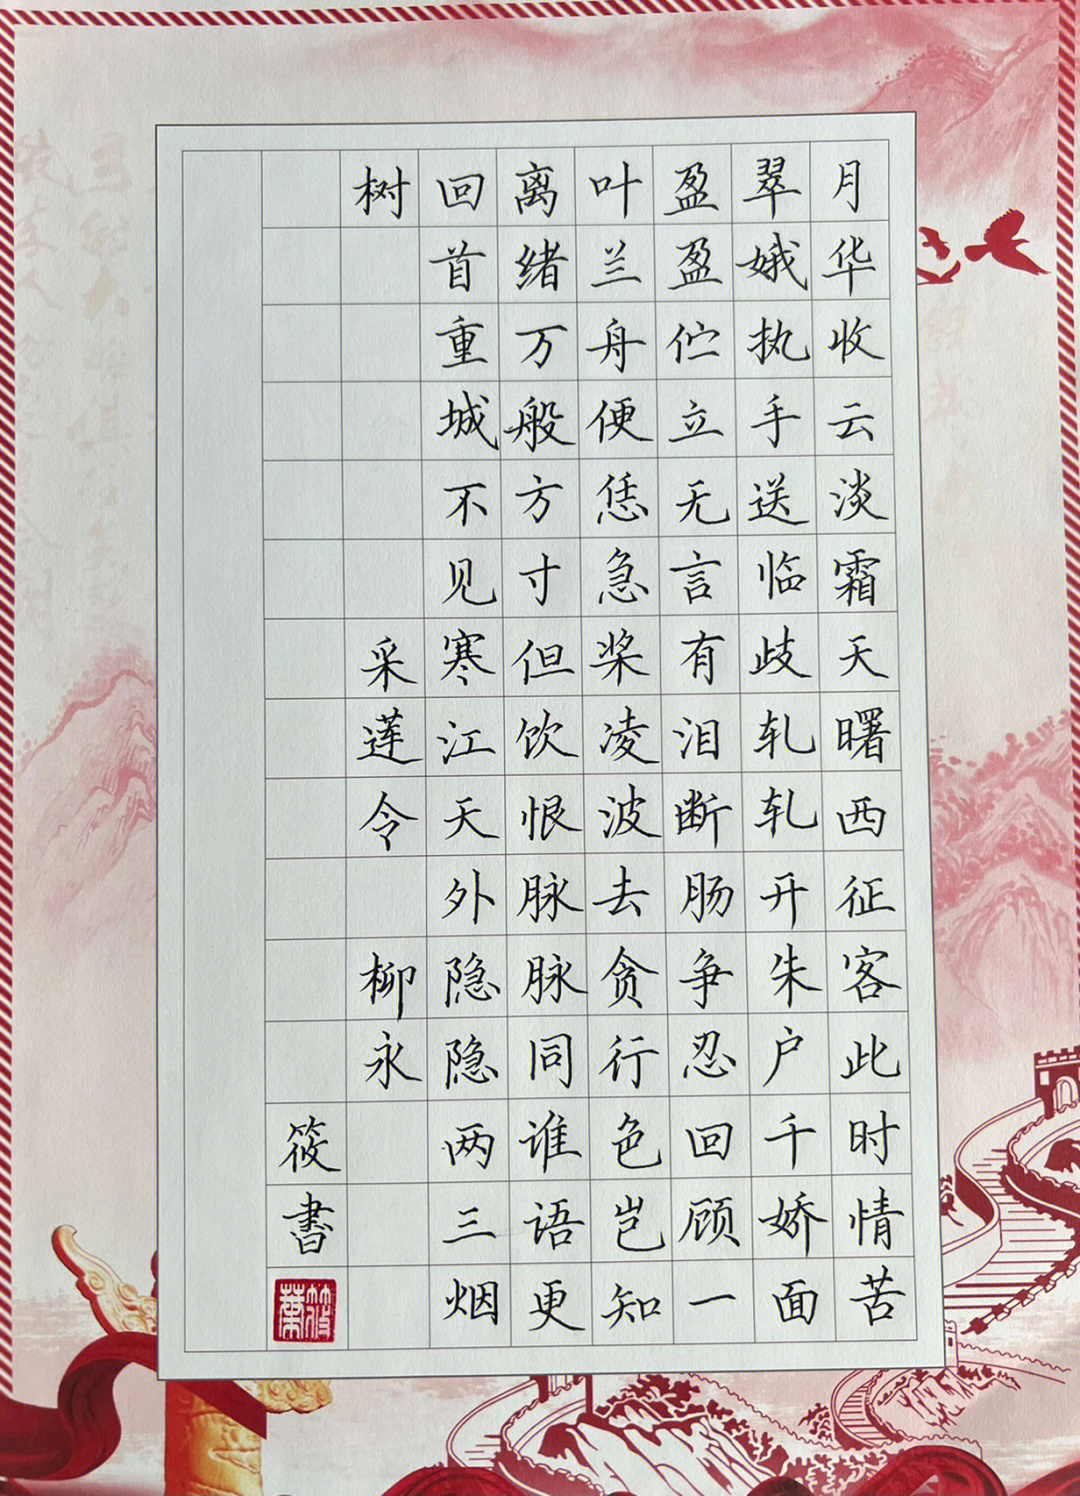 月华收云淡霜天曙西征客此时情苦
翠娥执手送临歧轧轧开朱户千娇面
盈盈伫立无言有泪断肠争忍回顾一
叶兰舟便恁急桨凌波去贪行色岂知
离绪万般方寸但饮恨脉脉同谁语更
回首重城不见寒江天外隐隐两三烟
树
采莲令
柳永
筱書